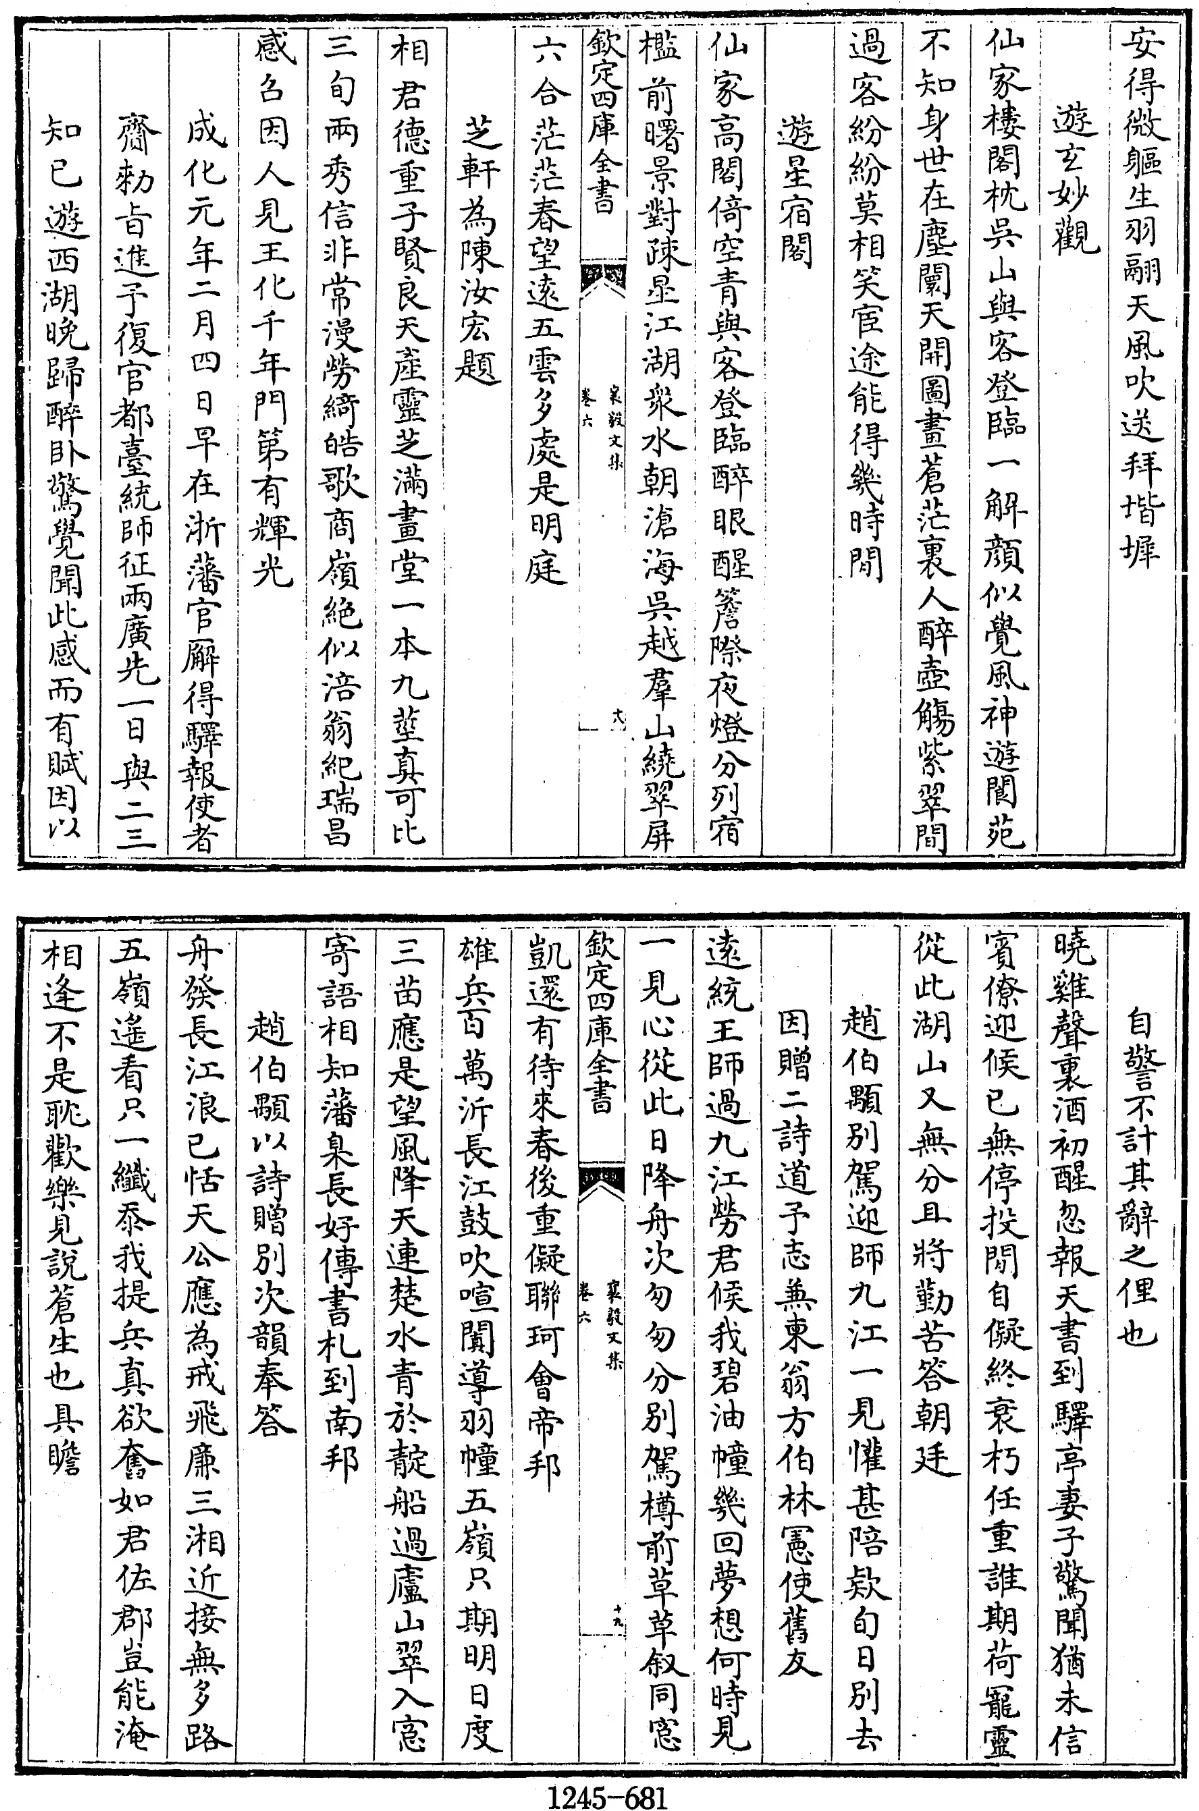 安得微軀生羽翮天風吹送拜堦墀
遊玄妙觀
仙家樓閣枕吳山與客登臨一解顔似覺風神遊閬苑
不知身世在塵闤天開圖畫蒼茫裏人醉壺觴紫翠間
過客紛紛莫相笑宦途能得幾時閒
遊星宿閣
仙家高閣倚空青與客登臨醉眼醒簷際夜燈分列宿
檻前曙景對疎星江湖衆水朝滄海吳越羣山繞翠屏
欽定四庫全書
襄毅文集
卷六
十八
六合茫茫春望遠五雲多處是明庭
芝軒為陳汝宏題
相君德重子賢良天產靈芝滿畫堂一本九莖真可比
三旬兩秀信非常漫勞綺皓歌商嶺絶似涪翁紀瑞昌
感召因人見王化千年門第有輝光
成化元年二月四日早在浙藩官廨得驛報使者
齎勑旨進予復官都臺統師征兩廣先一日與二三
知已遊西湖晩歸醉卧驚覺聞此感而有賦因以
自警不計其辭之俚也
曉雞聲裏酒初醒忽報天書到驛亭妻子驚聞猶未信
賓僚迎候已無停投閒自儗終衰朽任重誰期荷寵靈
從此湖山又無分且將勤苦答朝廷
趙伯顒別駕迎師九江一見懽甚陪欵旬日別去
因贈二詩道予志兼柬翁方伯林憲使舊友
遠統王師過九江勞君候我碧油幢幾回夢想何時見
一見心從此日降舟次匆匆分別駕樽前草草叙同窓
欽定四庫全書
襄毅文集
卷六
十九
凱還有待來春後重儗聯珂會帝邦
雄兵百萬泝長江鼓吹喧闐導羽幢五嶺只期明日度
三苗應是望風降天連楚水青於靛船過廬山翠入窓
寄語相知藩臬長好傳書札到南邦
趙伯顒以詩贈別次韻奉答
舟發長江浪已恬天公應為戒飛廉三湘近接無多路
五嶺遙看只一纖忝我提兵真欲奮如君佐郡豈能淹
相逢不是耽歡樂見說蒼生也具瞻
1245-681